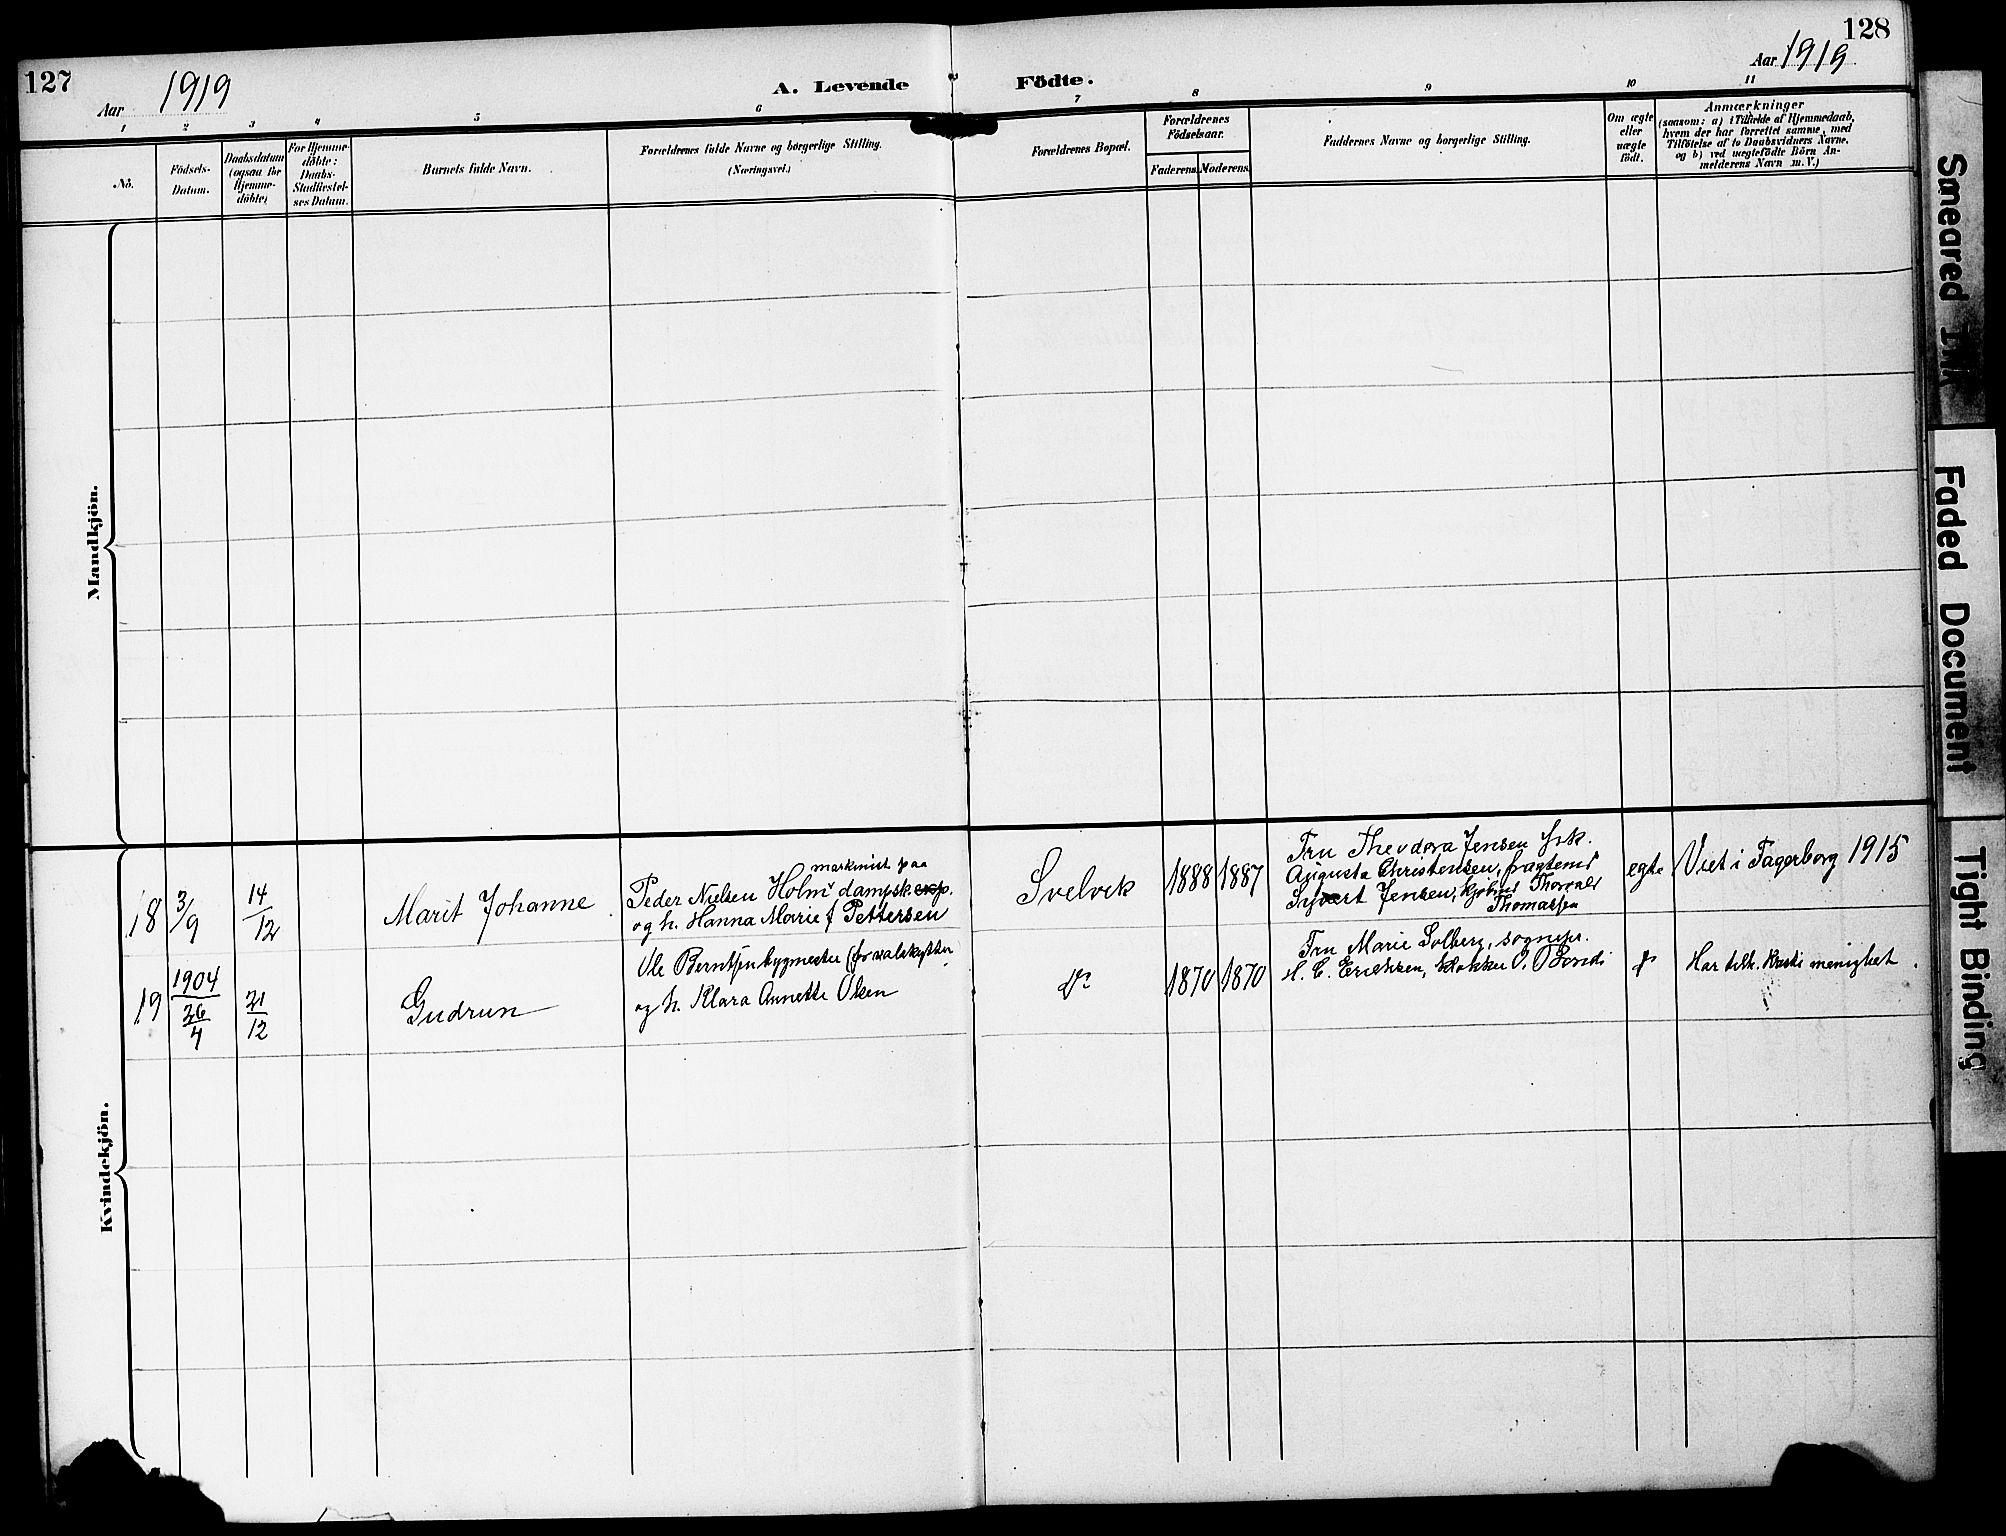 127
Aar 1919
A. Levende Födte.
128
Aar 1919
1 2 3 4 5 6 7 8 9 10 11
No.
Födsels-
Datum.
Daabsdatum
(ogsaa for
Hjemme-
döbte)
For Hjemme-
döbte:
Daabs-
Stadfæstel-
ses Datum.
Barnets fulde Navn.
Forældrenes fulde Navne og borgerlige Stilling.
(Næringsvei.)
Forældrenes Bopæl.
Forældrenes
Födselsaar.
Faderens. Moderens.
Faddernes Navne og borgerlige Stilling.
Om ægte
eller
uægte
födt.
Anmærkninger
(saasom: a) i Tilfælde af Hjemmedaab,
hvem der har forrettet samme, med
Tilföielse af to Daabsvidners Navne,
og b) ved uægtefödte Börn An-
melderens Navn m. V.)
Mandkjön.
Kvindekjön.
18
3/9
14/12
Marit Johanne
maskinist paa
Peder Nielsen Holm dampsk
og h. Hanna Marie f Pettersen
Svelvik
1888 1887
Fru Theodora Jensen frk.
Augusta Christensen, fragtemd
Sigvart Jensen, kjøbmd Thorvald
Thomassen
egte
Viet i Fagerborg 1915
19
1904
26/4
21/12
Gudrun
Ole Berntsen bygmester
og h. Klara Annette Olsen
do
1870 1870
Fru Marie Solberg, sognepr.
H. C. Erichsen, klokker O. Bondi
do
Har tilh. menighet
Smeared Ink
Faded Document
Tight Binding